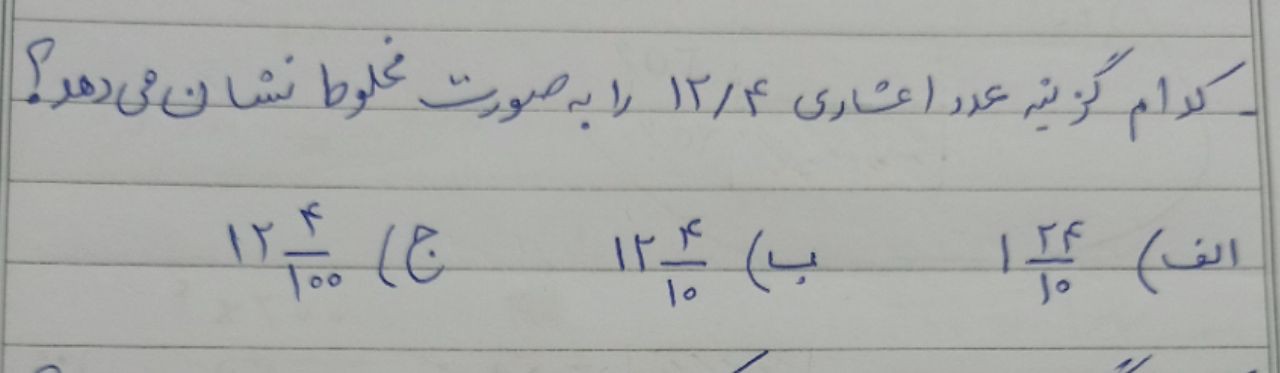 ـ کدام گزینه عدد اعشاری ۱۲/۴ را به صورت مخلوط نشان می‌دهد؟
الف) ۱ ۲۴/۱۰ ب) ۱۲ ۴/۱۰ ج) ۱۲ ۴/۱۰۰